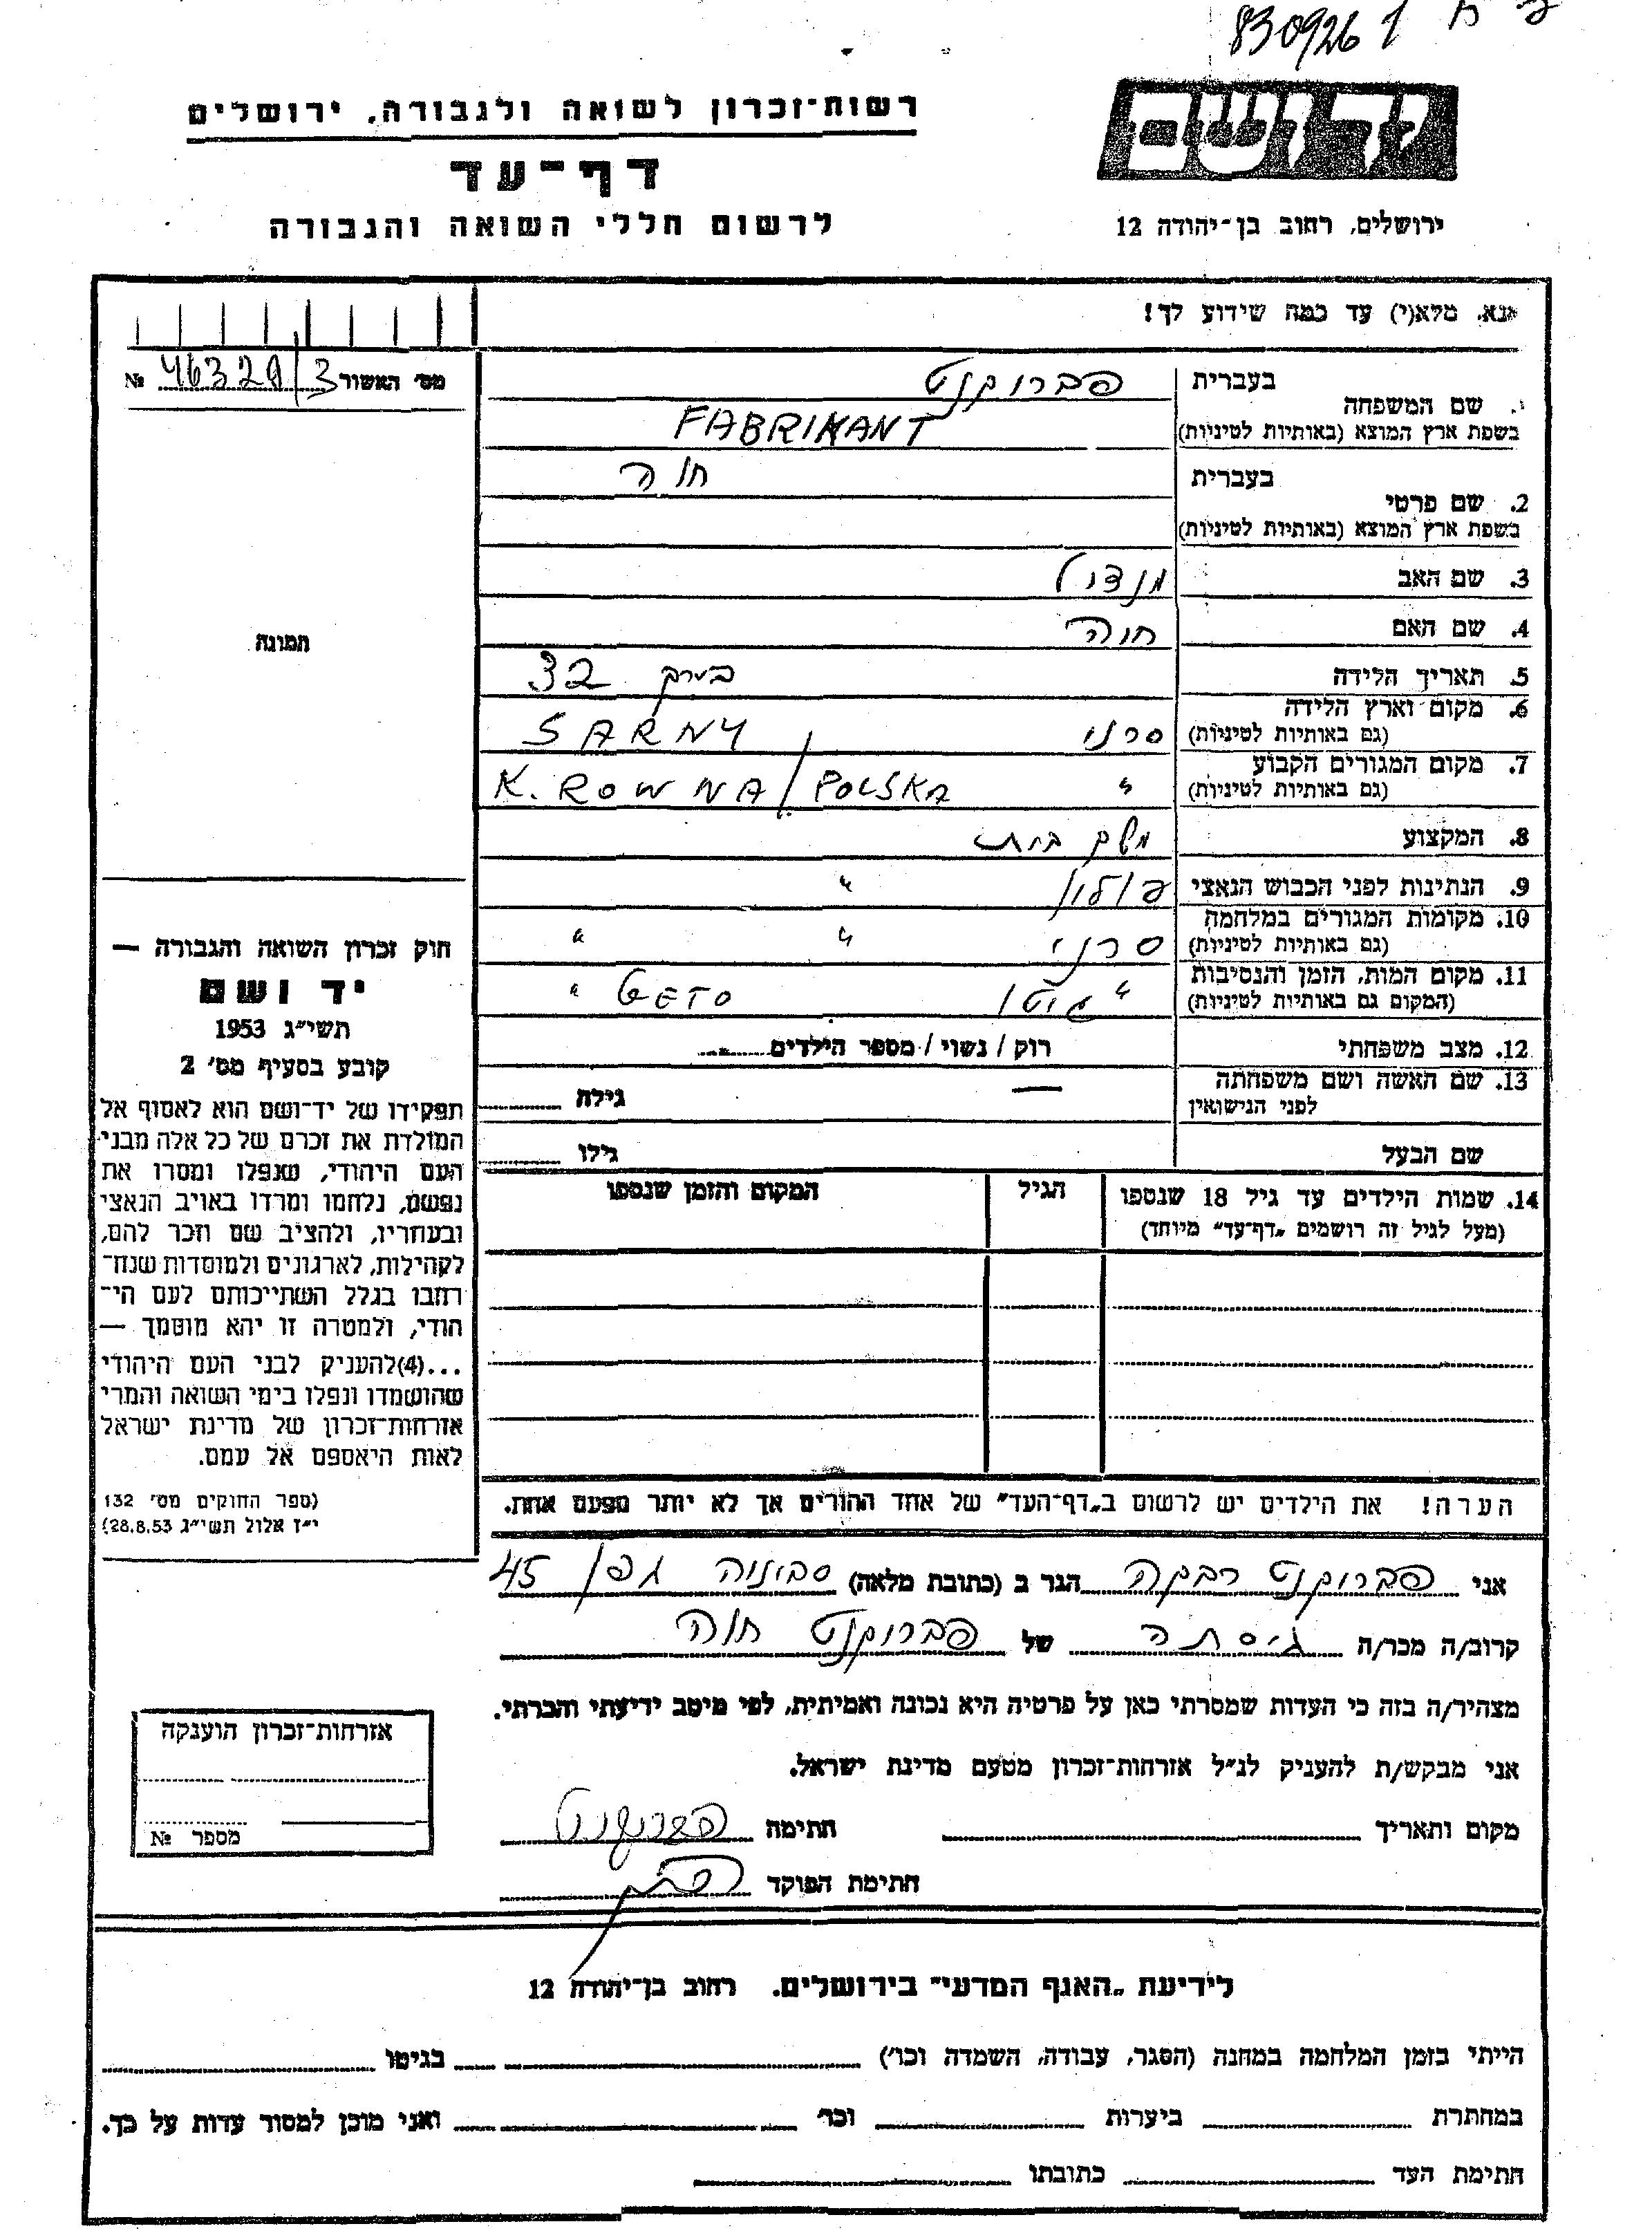 830926 1
רשות-זכרון לשואה ולגבורה, ירושלים
דף-עד
לרשום חללי השואה והגבורה
ידושם
ירושלים, רחוב בן-יהודה 12
נא, מלא(י) עד כמה שידוע לך!
מס׳ האשור 46320/3 №
בעברית פברוקנט
1. שם המשפחה
בשפת ארץ המוצא (באותיות לטיניות) FABRIKANT
בעברית חוה
2. שם פרטי
בשפת ארץ המוצא (באותיות לטיניות)
3. שם האב מנדיל
4. שם האם חוה
5. תאריך הלידה בערך 32
6. מקום וארץ הלידה
(גם באותיות לטיניות) סרני SARNY
7. מקום המגורים הקבוע
(גם באותיות לטיניות) " K. ROWNA / POLSKA
8. המקצוע
9. הנתינות לפני הכבוש הנאצי פולון "
10. מקומות המגורים במלחמה
(גם באותיות לטיניות) סרני " "
11. מקום המות, הזמן והנסיבות
(המקום גם באותיות לטיניות) " גיטו GETO "
12. מצב משפחתי רוק / נשוי / מספר הילדים
13. שם האשה ושם משפחתה
לפני הנישואין — גילה
שם הבעל גילו
14. שמות הילדים עד גיל 18 שנספו
(מעל לגיל זה רושמים „דף-עד" מיוחד)
הגיל
המקום והזמן שנספו
תמונה
חוק זכרון השואה והגבורה —
יד ושם
תשי״ג 1953
קובע בסעיף מס׳ 2
תפקידו של יד-ושם הוא לאסוף אל
המולדת את זכרם של כל אלה מבני
העם היהודי, שנפלו ומסרו את
נפשם, נלחמו ומרדו באויב הנאצי
ובעוזריו, ולהציב שם וזכר להם,
לקהילות, לארגונים ולמוסדות שנח־
רבו בגלל השתייכותם לעם הי־
הודי, ולמטרה זו יהא מוסמך —
...(4)להעניק לבני העם היהודי
שהושמדו ונפלו בימי השואה והמרי
אזרחות-זכרון של מדינת ישראל
לאות היאספם אל עמם.
(ספר החוקים מס׳ 132
י״ז אלול תשי״ג 28.8.53)
הערה! את הילדים יש לרשום ב„דף-העד" של אחד ההורים אך לא יותר מפעם אחת.
אני פברוקנט רבקה הגר ב (כתובת מלאה) סביניה גפן 45
קרוב/ה מכר/ה גיסתה של פברוקנט חוה
מצהיר/ה בזה כי העדות שמסרתי כאן על פרטיה היא נכונה ואמיתית, לפי מיטב ידיעתי והכרתי.
אני מבקש/ת להעניק לנ״ל אזרחות-זכרון מטעם מדינת ישראל.
מקום ותאריך חתימה
חתימת הפוקד
אזרחות-זכרון הוענקה
מספר №
לידיעת „האגף המדעי" בירושלים, רחוב בן-יהודה 12
הייתי בזמן המלחמה במחנה (הסגר, עבודה, השמדה וכו׳) בגיטו
במחתרת ביערות וכו׳ ואני מוכן למסור עדות על כך.
חתימת העד כתובתו